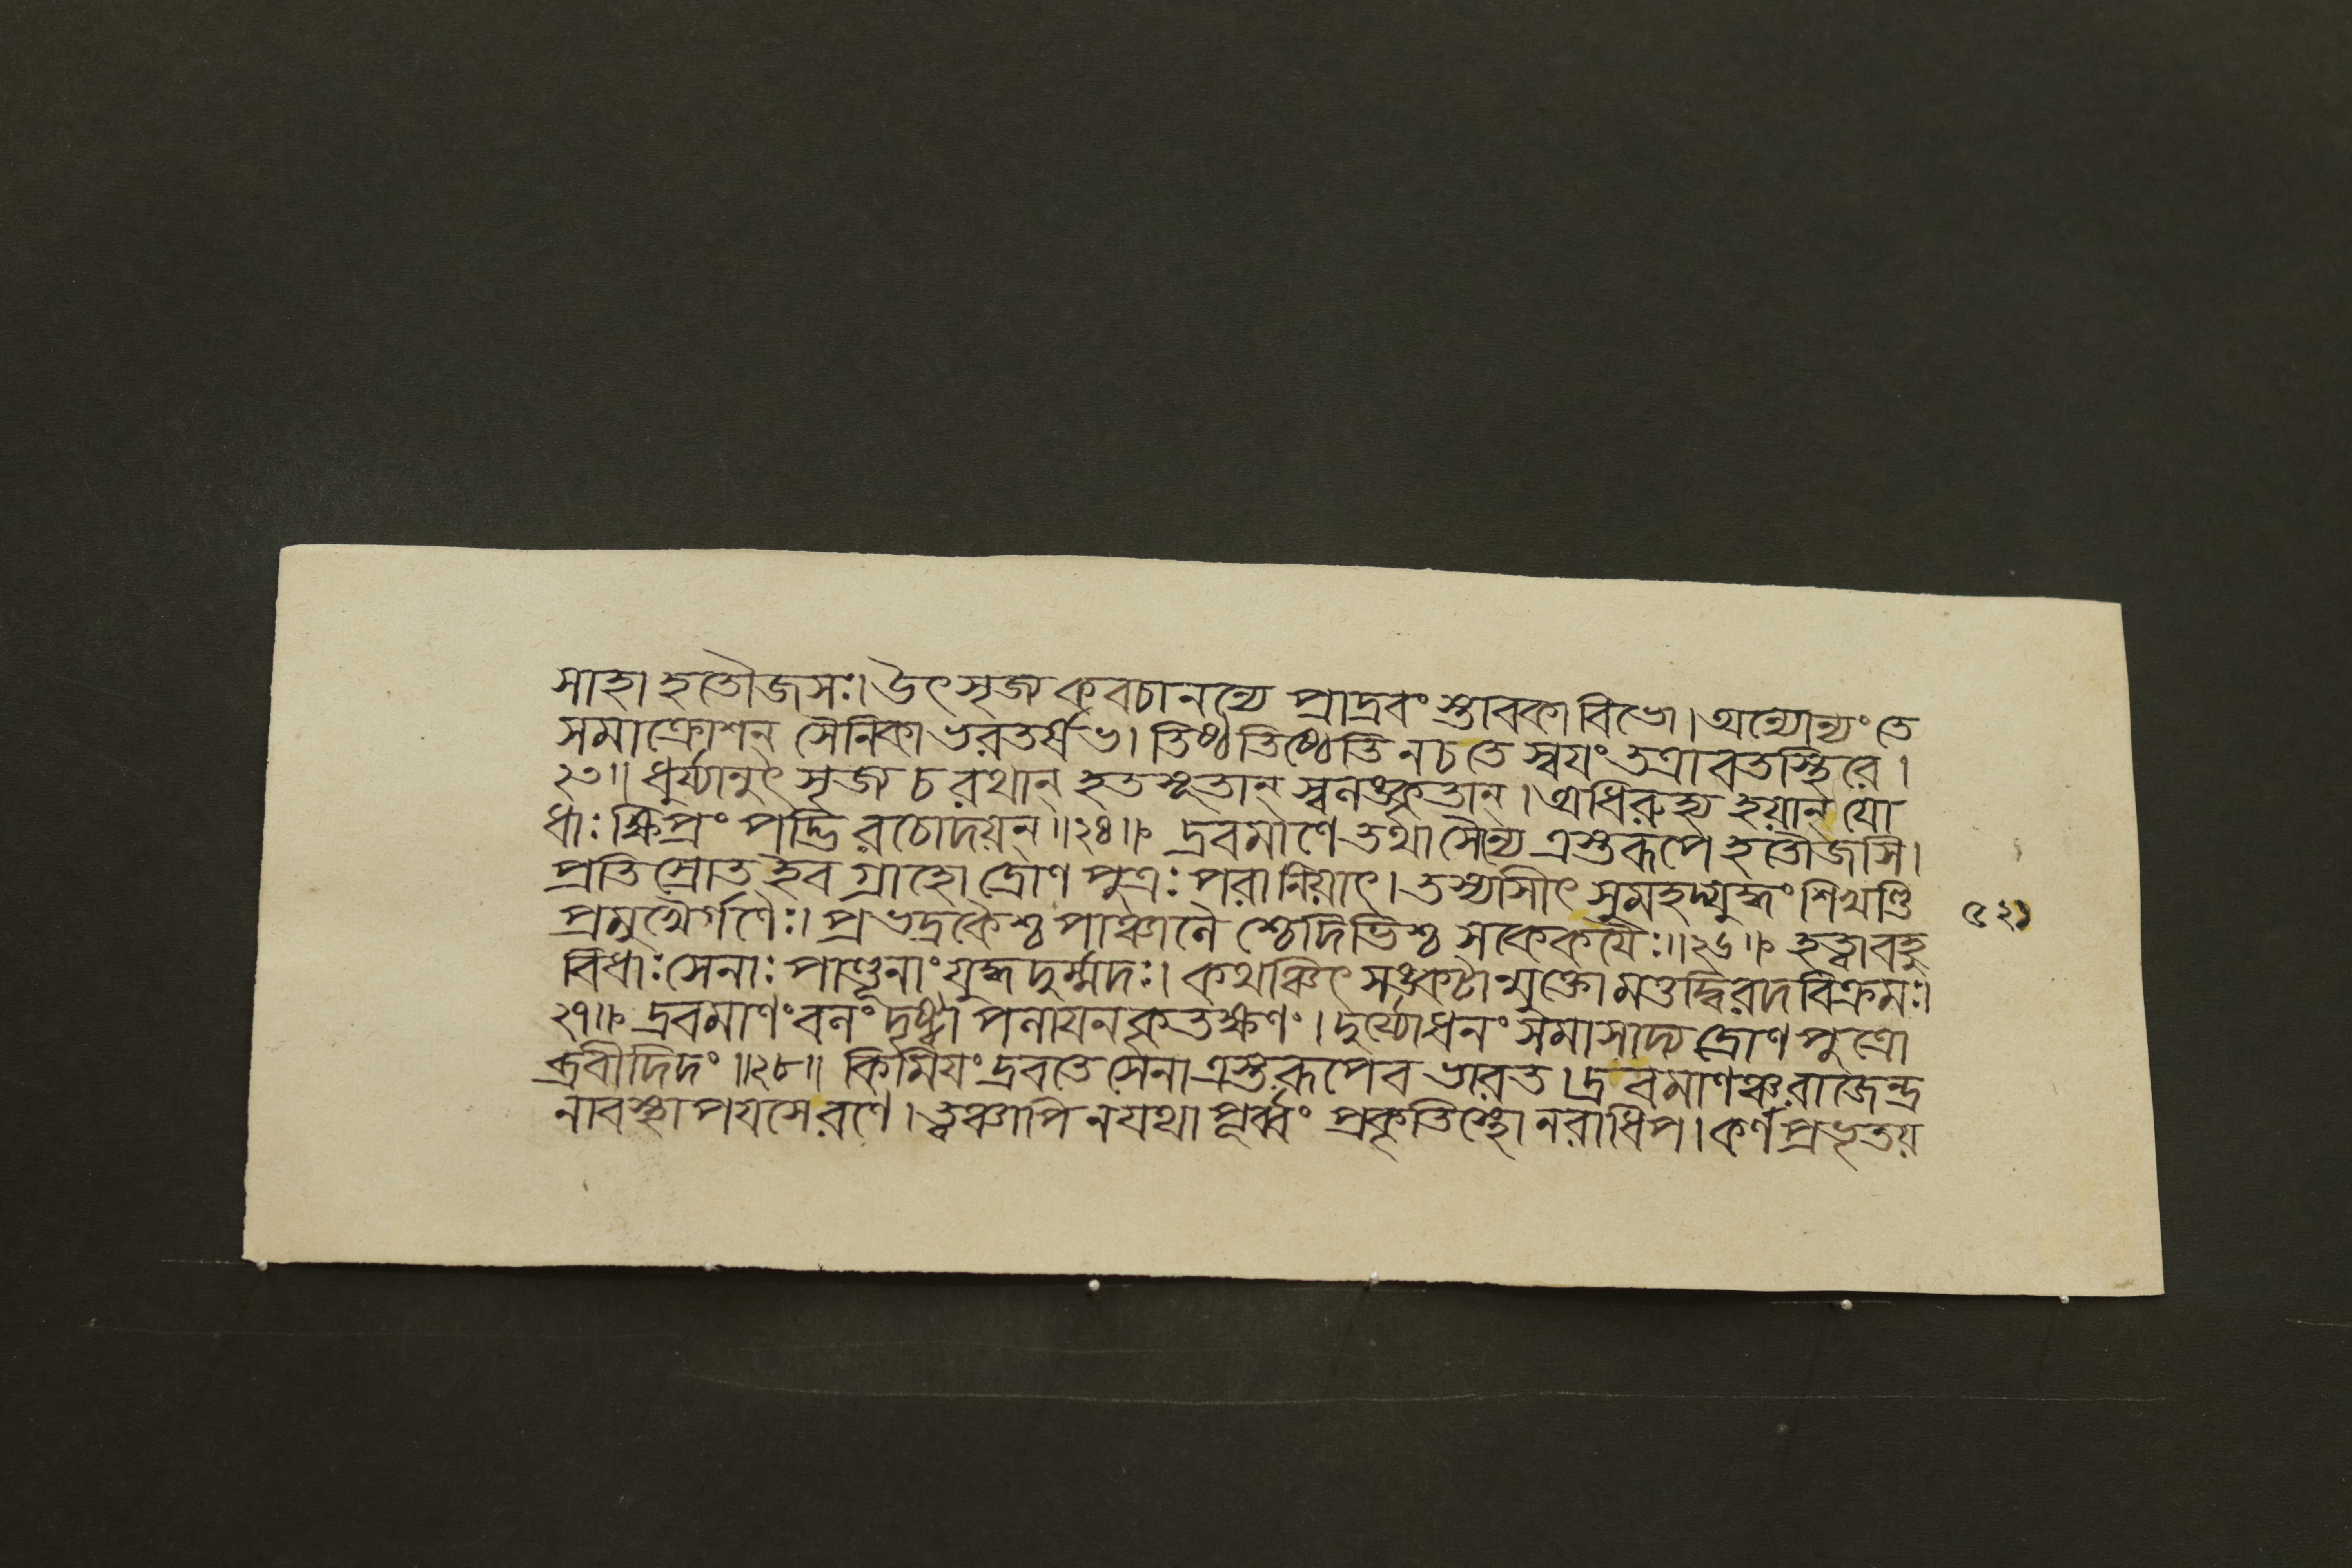 সাহা হতৌজসঃ। উৎসৃজ্য কবচানন্যে প্রাদ্রবংস্তাবকা বিভো। অন্যোন্যং তে
সমাক্রোশন্ সৈনিকা ভরতর্ষভ। তিষ্ঠ তিষ্ঠেতি ন চ তে স্বযং তত্রাবতস্থিরে।
২৩॥ ধুর্য্যানুৎসৃজ্য চ রথান্ হতসূতান্ স্বনঙ্কৃতান্। অধিরুহ্য হয়ান্ যো
ধাঃ ক্ষিপ্রং পদ্ভিরচোদয়ন্॥২৪॥ দ্রবমাণে তথা সৈন্যে ত্রস্তরূপে হতৌজসি।
প্রতিস্রোত ইব গ্রাহো দ্রোণপুত্রঃ পরানিয়াৎ। তস্যাসীৎ সুমহদ্যুদ্ধং শিখণ্ডি
প্রমুখৈর্গণৈঃ। প্রভদ্রকৈশ্চ পাঞ্চানৈশ্চেদিভিশ্চ সকেকযৈঃ॥২৬॥ হত্বা বহু
বিধাঃ সেনাঃ পাণ্ডূনাং যুদ্ধদুর্ম্মদঃ। কথঞ্চিৎ সঙ্কটান্মুক্তো মত্তদ্বিরদবিক্রমঃ।
২৭॥ দ্রবমাণং বনং দৃষ্ট্বা পনাযনকৃতক্ষণং। দুর্য্যোধনং সমাসাদ্য দ্রোণপুত্রো
ব্রবীদিদং॥২৮॥ কিমিযং দ্রবতে সেনা ত্রস্তরূপেব ভারত। দ্রবমাণঞ্চ রাজেন্দ্র
নাবস্থাপযসে রণে। ত্বঞ্চাপি ন যথাপূর্ব্বং প্রকৃতিস্থো নরাধিপ। কর্ণপ্রভৃতয়
৫২১